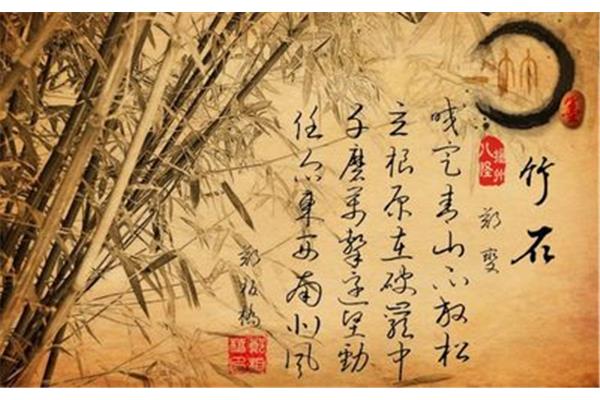 竹石
郑燮
揚州
八怪
咬定青山不放松
立根原在破巖中
千磨萬擊还坚勁
任尔東西南北风
郑板橋